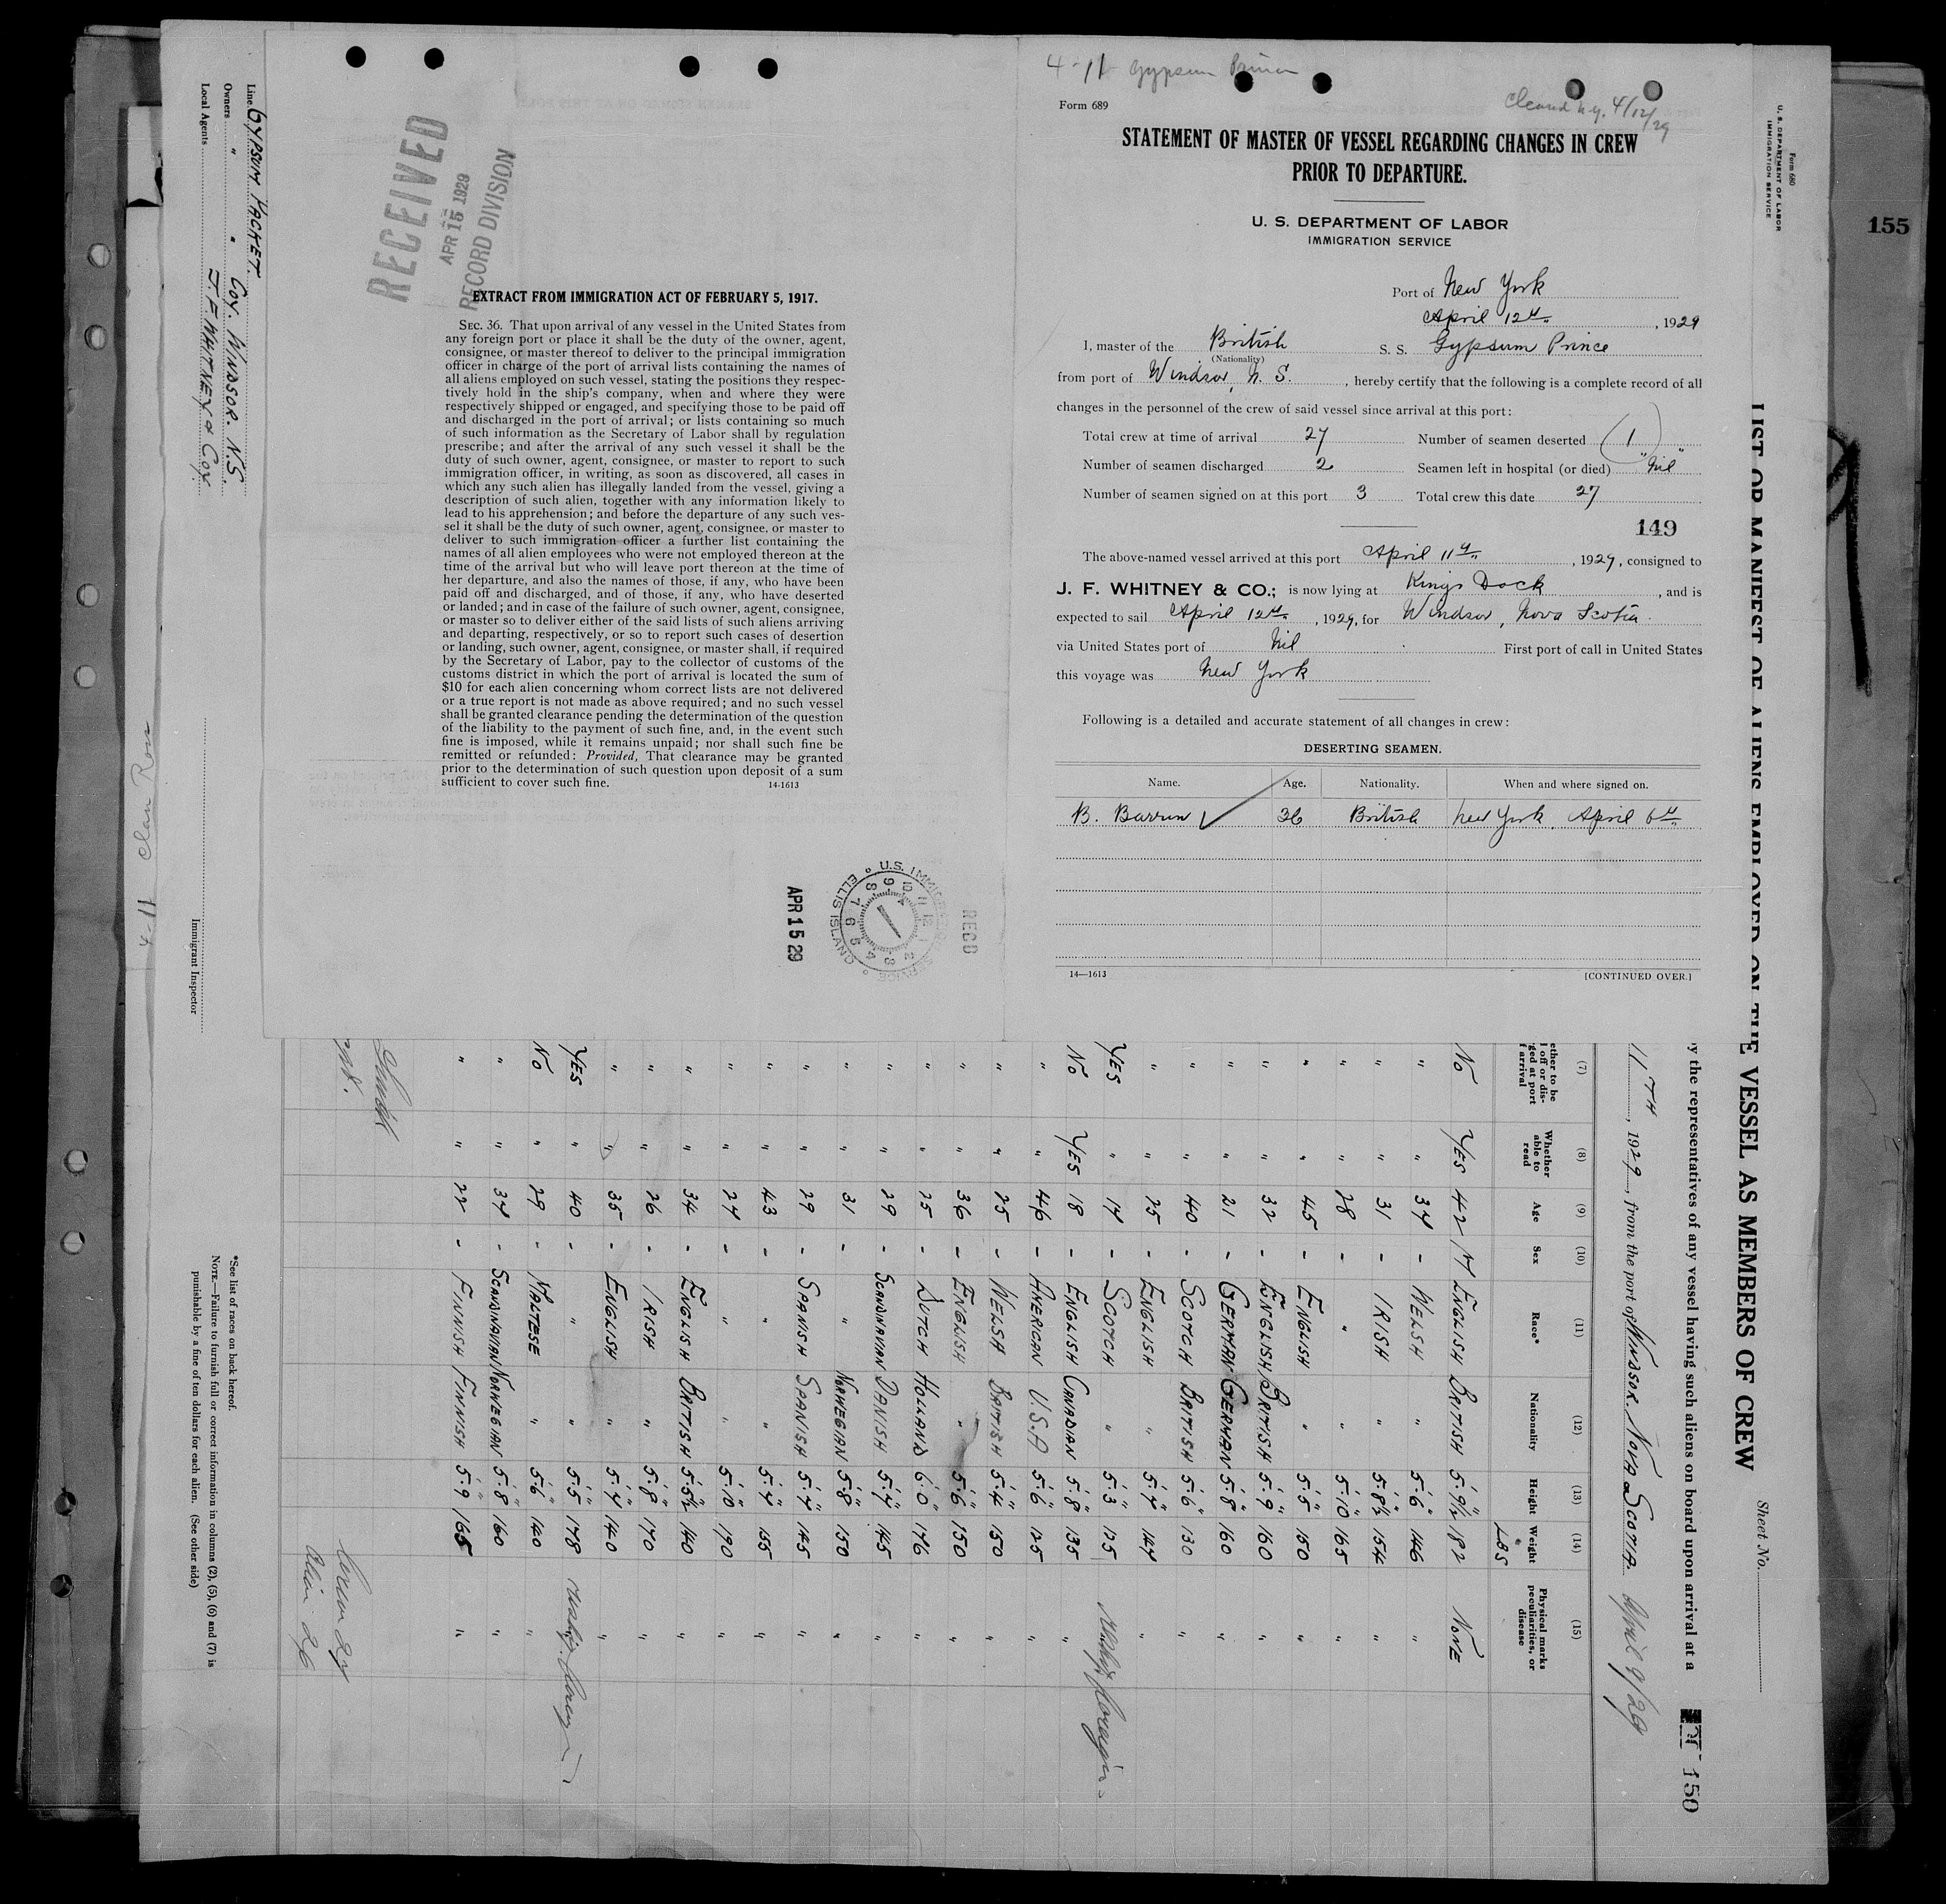 155
4-11 Clan Ross
4-11 Gypsum Prince
Cleared N.Y. 4/12/29
Form 689
STATEMENT OF MASTER OF VESSEL REGARDING CHANGES IN CREW
PRIOR TO DEPARTURE.
U. S. DEPARTMENT OF LABOR
IMMIGRATION SERVICE
Port of New York
April 12th, 1929
I, master of the British S. S. Gypsum Prince
(Nationality)
from port of Windsor, N. S., hereby certify that the following is a complete record of all
changes in the personnel of the crew of said vessel since arrival at this port:
Total crew at time of arrival 27 Number of seamen deserted (1)
Number of seamen discharged 2 Seamen left in hospital (or died) "Nil"
Number of seamen signed on at this port 3 Total crew this date 27
149
The above-named vessel arrived at this port April 11th, 1929, consigned to
J. F. WHITNEY & CO.; is now lying at Kings Dock, and is
expected to sail April 12th, 1929, for Windsor, Nova Scotia.
via United States port of Nil First port of call in United States
this voyage was New York
Following is a detailed and accurate statement of all changes in crew:
DESERTING SEAMEN.
Name. Age. Nationality. When and where signed on.
B. 36 British New York, April 6th
14—1613 [CONTINUED OVER.]
RECEIVED
APR 15 1929
RECORD DIVISION
EXTRACT FROM IMMIGRATION ACT OF FEBRUARY 5, 1917.
SEC. 36. That upon arrival of any vessel in the United States from
any foreign port or place it shall be the duty of the owner, agent,
consignee, or master thereof to deliver to the principal immigration
officer in charge of the port of arrival lists containing the names of
all aliens employed on such vessel, stating the positions they respec-
tively hold in the ship's company, when and where they were
respectively shipped or engaged, and specifying those to be paid off
and discharged in the port of arrival; or lists containing so much
of such information as the Secretary of Labor shall by regulation
prescribe; and after the arrival of any such vessel it shall be the
duty of such owner, agent, consignee, or master to report to such
immigration officer, in writing, as soon as discovered, all cases in
which any such alien has illegally landed from the vessel, giving a
description of such alien, together with any information likely to
lead to his apprehension; and before the departure of any such ves-
sel it shall be the duty of such owner, agent, consignee. or master to
deliver to such immigration officer a further list containing the
names of all alien employees who were not employed thereon at the
time of the arrival but who will leave port thereon at the time of
her departure, and also the names of those, if any, who have been
paid off and discharged, and of those, if any, who have deserted
or landed; and in case of the failure of such owner, agent, consignee,
or master so to deliver either of the said lists of such aliens arriving
and departing, respectively, or so to report such cases of desertion
or landing, such owner, agent, consignee, or master shall, if required
by the Secretary of Labor, pay to the collector of customs of the
customs district in which the port of arrival is located the sum of
$10 for each alien concerning whom correct lists are not delivered
or a true report is not made as above required; and no such vessel
shall be granted clearance pending the determination of the question
of the liability to the payment of such fine, and, in the event such
fine is imposed, while it remains unpaid; nor shall such fine be
remitted or refunded: Provided, That clearance may be granted
prior to the determination of such question upon deposit of a sum
sufficient to cover such fine. 14-1613
REC'D
U.S. IMMIGRATION SERVICE ELLIS ISLAND
APR 15 29
Form 680
U. S. DEPARTMENT OF LABOR
IMMIGRATION SERVICE
LIST OR MANIFEST OF ALIENS EMPLOYED ON THE VESSEL AS MEMBERS OF CREW
Sheet No.
y the representatives of any vessel having such aliens on board upon arrival at a
150
11TH, 1929, from the port of WINDSOR NOVA SCOTIA. April 9/29
(7) (8) (9) (10) (11) (12) (13) (14) (15)
ether to be Whether able to read Age Sex Race* Nationality Height Weight Physical marks peculiarities, or disease
LBS
NO YES 42 M ENGLISH BRITISH 5'.9½" 182 NONE
" " 34 - WELSH " 5'.6" 146 "
" " 31 - IRISH " 5'.8½" 154 "
" " 28 - " " 5'.10" 165 "
" " 45 - ENGLISH " 5'.5" 150 "
" " 32 - ENGLISH BRITISH 5'.9" 160 "
" " 21 - GERMAN GERMAN 5'.8" 160 "
" " 40 - SCOTCH BRITISH 5'.6" 130 "
" " 25 - ENGLISH " 5'.7" 147 "
YES " 17 - SCOTCH " 5'.3" 125 Reship foreign
NO YES 18 - ENGLISH CANADIAN 5'.8" 135 "
" " 46 - AMERICAN U.S.A 5'.6" 125 "
" " 25 - WELSH BRITISH 5'.4" 150 "
" " 36 - ENGLISH " 5'.6" 150 "
" " 25 - DUTCH HOLLAND 6'.0" 176 "
" " 29 - SCANDINAVIAN DANISH 5'.7" 145 "
" " 31 - " NORWEGIAN 5'.8" 150 "
" " 29 - SPANISH SPANISH 5'.7" 145 "
" " 43 - " " 5'.4" 155 "
" " 27 - " " 5'.10" 190 "
" " 34 - ENGLISH BRITISH 5'.5½" 140 "
" " 26 - IRISH " 5'.8" 170 "
" " 35 - ENGLISH " 5'.4" 140 "
YES " 40 - " " 5'.5" 178 Reship foreign
NO " 29 - MALTESE " 5'.6" 140 "
" " 34 - SCANDINAVIAN NORWEGIAN 5'.8" 160 "
" " 22 - FINNISH FINNISH 5'.9" 165 "
Crew 27
Alien 26
*See list of races on back hereof.
NOTE.—Failure to furnish full or correct information in columns (2), (5), (6) and (7) is
punishable by a fine of ten dollars for each alien. (See other side)
Line GYPSUM PACKET.
Owners " " COY. WINDSOR. N.S.
Local Agents J. F. WHITNEY & COY.
Immigrant Inspector